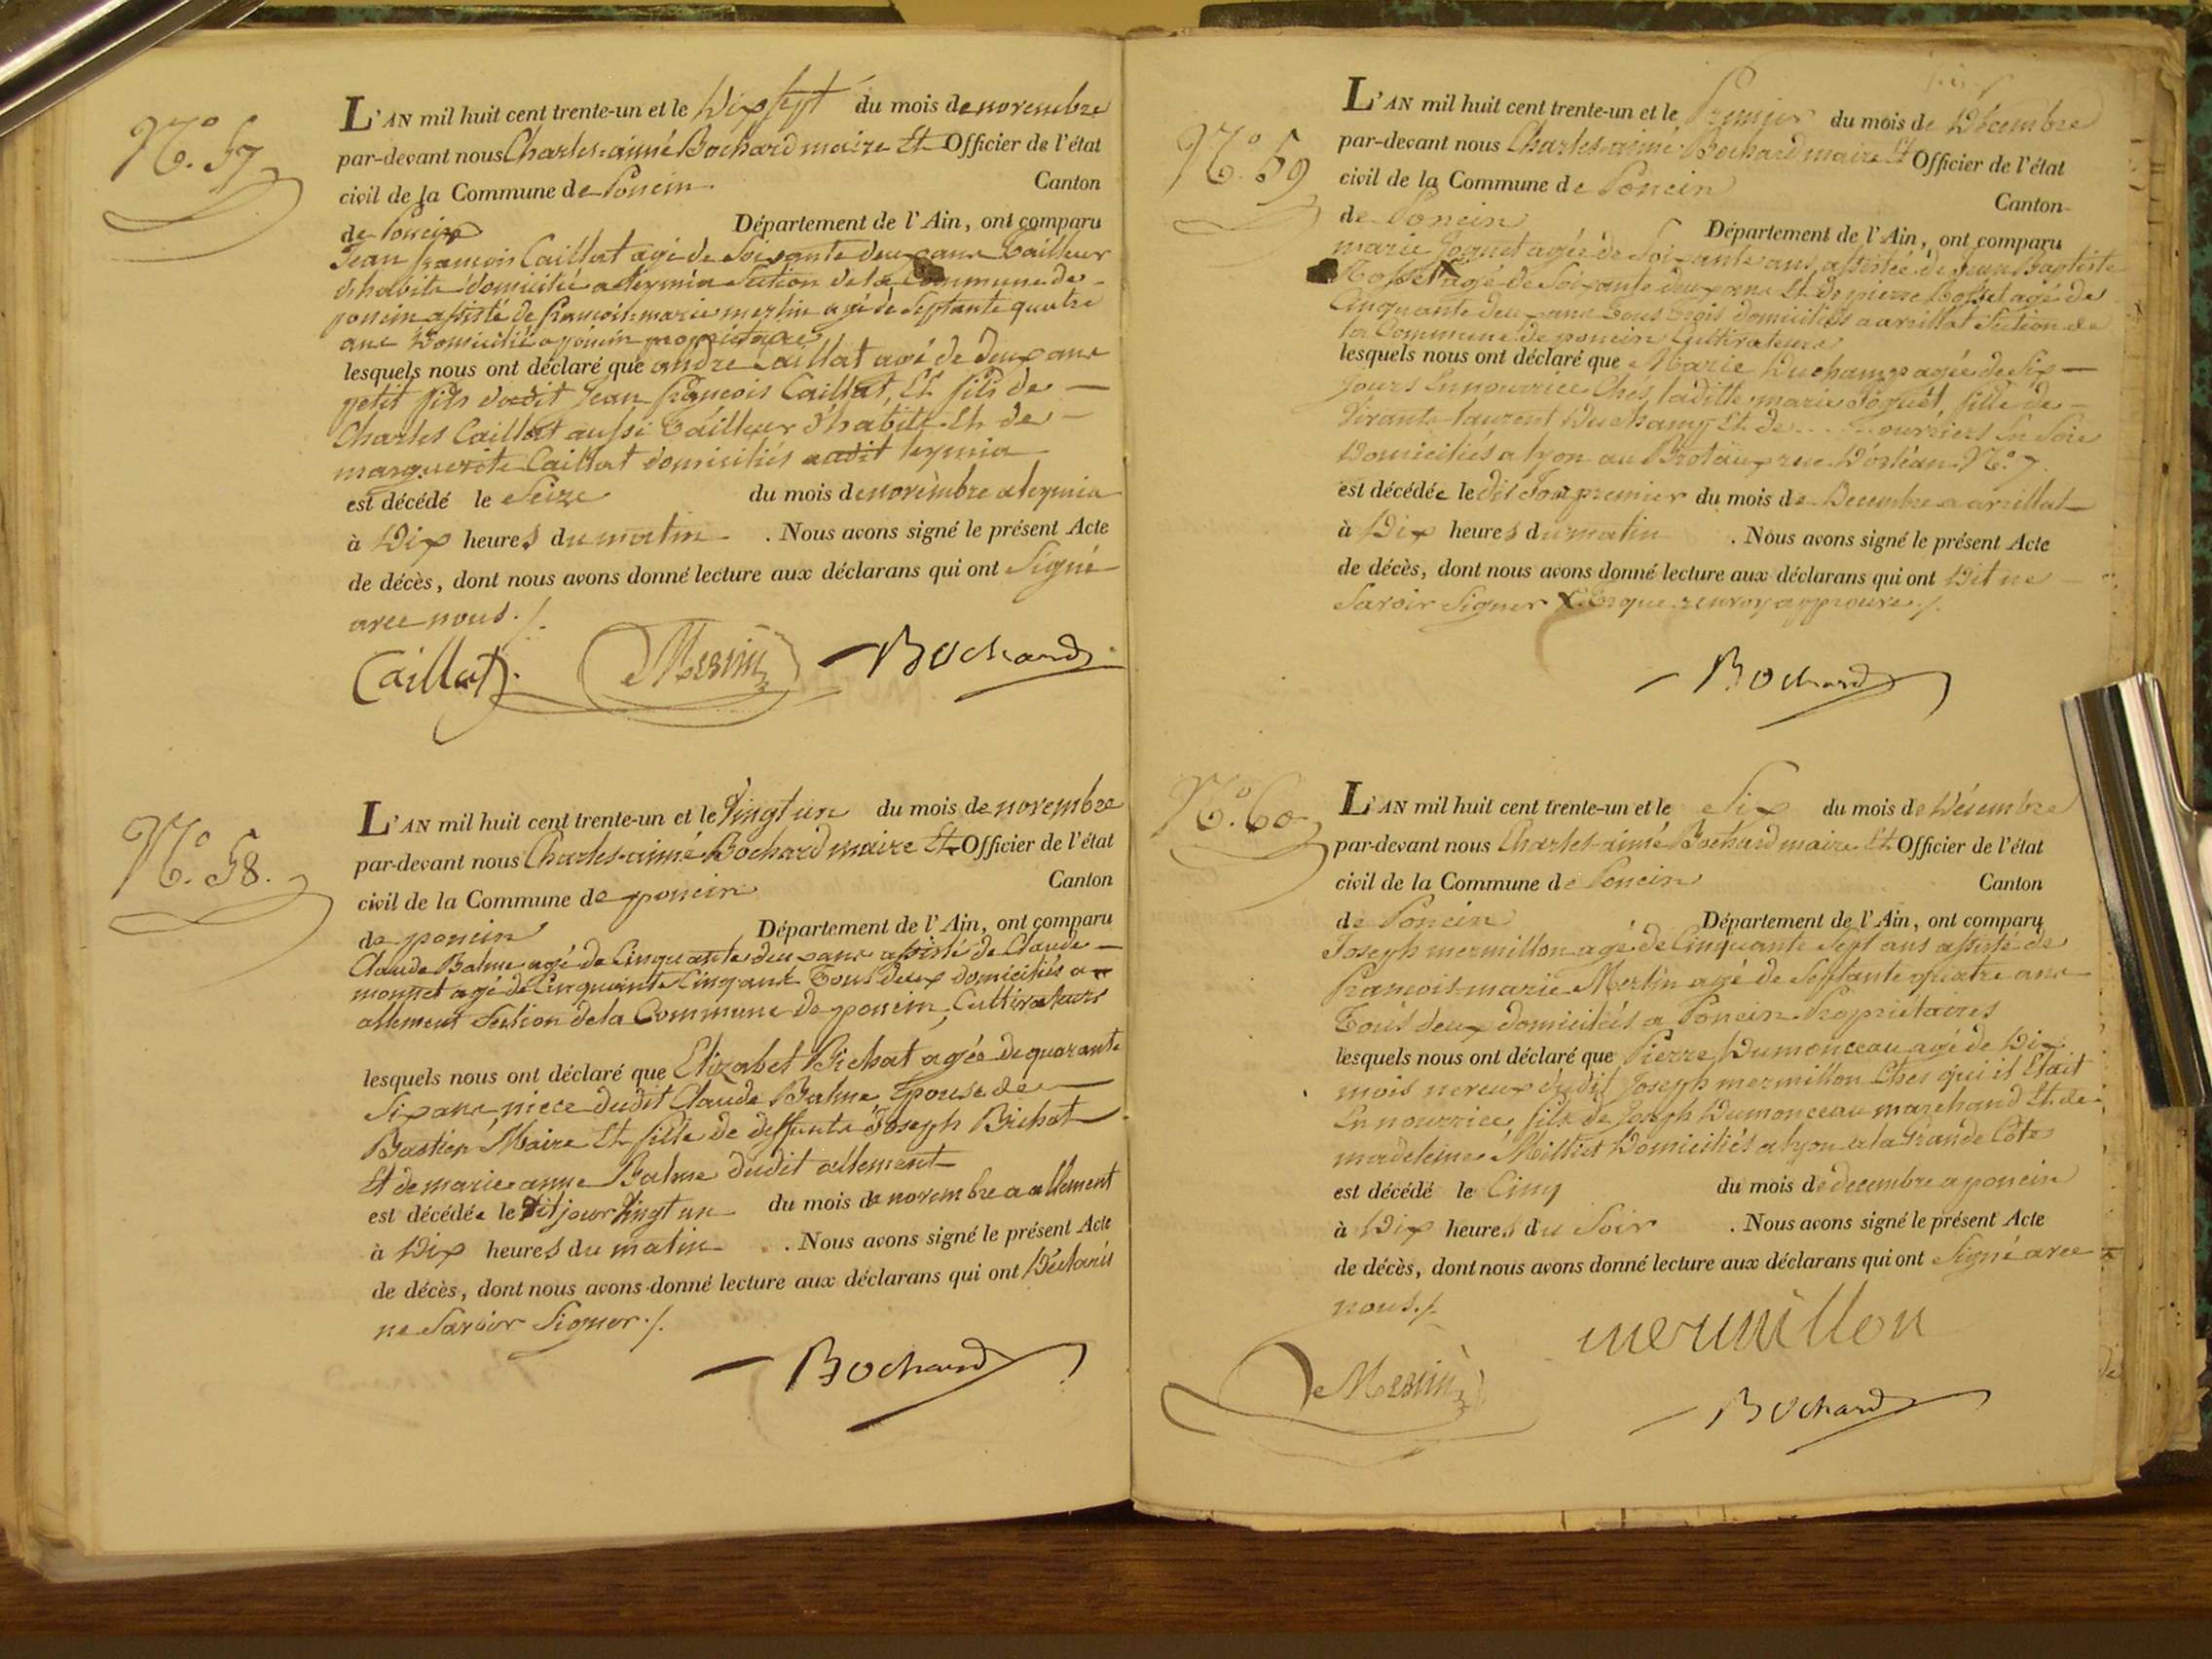 N.o 57
L'AN mil huit cent trente-un et le Dix Sept du mois de novembre
par-devant nous Charles-aimé Bochard maire Et Officier de l'état
civil de la Commune de Poncin Canton
de Poncin Département de l'Ain, ont comparu
Jean francois Caillat agé de Soixante deux ans Tailleur
d'habits domicilié a leymia Section de la Commune de
poncin assisté de francois-marie merlin agé de Septante quatre
ans Domicilié a poncin propriétaire
lesquels nous ont déclaré que andre Caillat agé de deux ans
petit fils dudit Jean francois Caillat, Et fils de
Charles Caillat aussi Tailleur d'habits Et de
marguerite Caillat domiciliés audit leymia
est décédé le Seize du mois de novembre a leymia
à Dix heures du matin . Nous avons signé le présent Acte
de décès, dont nous avons donné lecture aux déclarans qui ont Signé
avec nous ./.
Caillat Merlin Bochard
N.o 58.
L'AN mil huit cent trente-un et le Vingt un du mois de novembre
par-devant nous Charles-aimé Bochard maire Et Officier de l'état
civil de la Commune de poncin Canton
de poncin Département de l'Ain, ont comparu
Claude Balme agé de Cinquante deux ans assisté de Claude
monnet agé de Cinquante Cinq ans Tous deux domiciliés a
allement Section de la Commune de poncin, Cultivateurs
lesquels nous ont déclaré que Elizabet Bichat agée de quarante
Six ans, niece dudit Claude Balme, Epouse de
Bastien Maire Et fille de deffunts Joseph Bichat
Et de marie anne Balme dudit allement
est décédée le dit jour Vingt un du mois de novembre a allement
à Dix heures du matin . Nous avons signé le présent Acte
de décès, dont nous avons donné lecture aux déclarans qui ont Déclarés
ne Savoir Signer ./.
Bochard
N.o 59
L'AN mil huit cent trente-un et le Premier du mois de Décembre
par-devant nous Charles-aimé Bochard maire Et Officier de l'état
civil de la Commune de Poncin Canton
de Poncin Département de l'Ain, ont comparu
marie Joguet agée de Soixante ans, assistée de Jean Baptiste
Rosset agé de Soixante deux ans Et de pierre Rosset agé de
Cinquante deux ans Tous Trois domiciliés a arvillat Section de
la Commune de poncin Cultivateurs
lesquels nous ont déclaré que Marie Duchamp agée de Six
Jours En nourrice Chés laditte marie Joguet, fille de
Vivants laurent Duchamp Et de ... ouvriers En Soie
Domiciliés a lyon au Brotaux rue D'orléan N.o 7.
est décédée le dit Jour premier du mois de Decembre a arvillat
à Dix heures du matin . Nous avons signé le présent Acte
de décès, dont nous avons donné lecture aux déclarans qui ont Dit ne
Savoir Signer renvoy approuvé ./.
Bochard
N.o 60
L'AN mil huit cent trente-un et le Six du mois de Décembre
par-devant nous Charles-aimé Bochard maire Et Officier de l'état
civil de la Commune de Poncin Canton
de Poncin Département de l'Ain, ont comparu
Joseph mermillon agé de Cinquante Sept ans assisté de
francois-marie Merlin agé de Septante quatre ans
Tous deux domiciliés a Poncin Propriétaires
lesquels nous ont déclaré que Pierre Dumonceau agé de Dix
mois neveux dudit Joseph mermillon Ches qui il Etait
En nourrice, fils de Joseph Dumonceau marchand Et de
madeleine Domiciliés a lyon a la Grande Cote
est décédé le Cinq du mois de decembre a poncin
à Dix heures du Soir . Nous avons signé le présent Acte
de décès, dont nous avons donné lecture aux déclarans qui ont Signé avec
nous ./.
mermillon
Merlin
Bochard